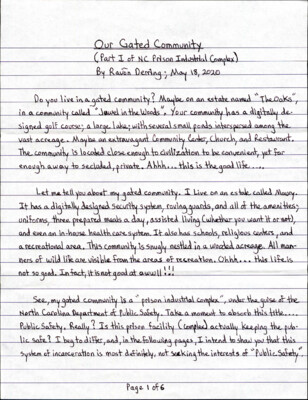 Our Gated Community
(Part I of NC Prison Industrial Complex)
By Raven Derring; May 18, 2020
Do you live in a gated community? Maybe on an estate named "The Oaks",
in a community called "Jewel in the Woods". Your community has a digitally de-
signed golf course; a large lake; with several small ponds interspersed among the
vast acreage. Maybe an extravagant Community Center, Church, and Restaurant.
The community is located close enough to civilization to be convenient, yet far
enough away to secluded, private. Ahhh... this is the good life....
Let me tell you about my gated community. I live on an estate called Maury.
It has a digitally designed security system, roving guards, and all of the amenities;
uniforms, three prepared meals a day, assisted living (whether you want it or not),
and even an in-house health care system. It also has schools, religious centers, and
a recreational area. This community is snugly nestled in a wooded acreage. All man-
ners of wild life are visible from the areas of recreation. Ohhh... this life is
not so good. In fact, it is not good at awull!!!
See, my gated community is a "prison industrial complex", under the guise of the
North Carolina Department of Public Safety. Take a moment to absorb this title....
Public Safety. Really? Is this prison facility (Complex) actually keeping the pub-
lic safe? I beg to differ, and, in the following pages, I intend to show you that this
system of incarceration is most definitely, not seeking the interests of "Public Safety".
Page 1 of 6